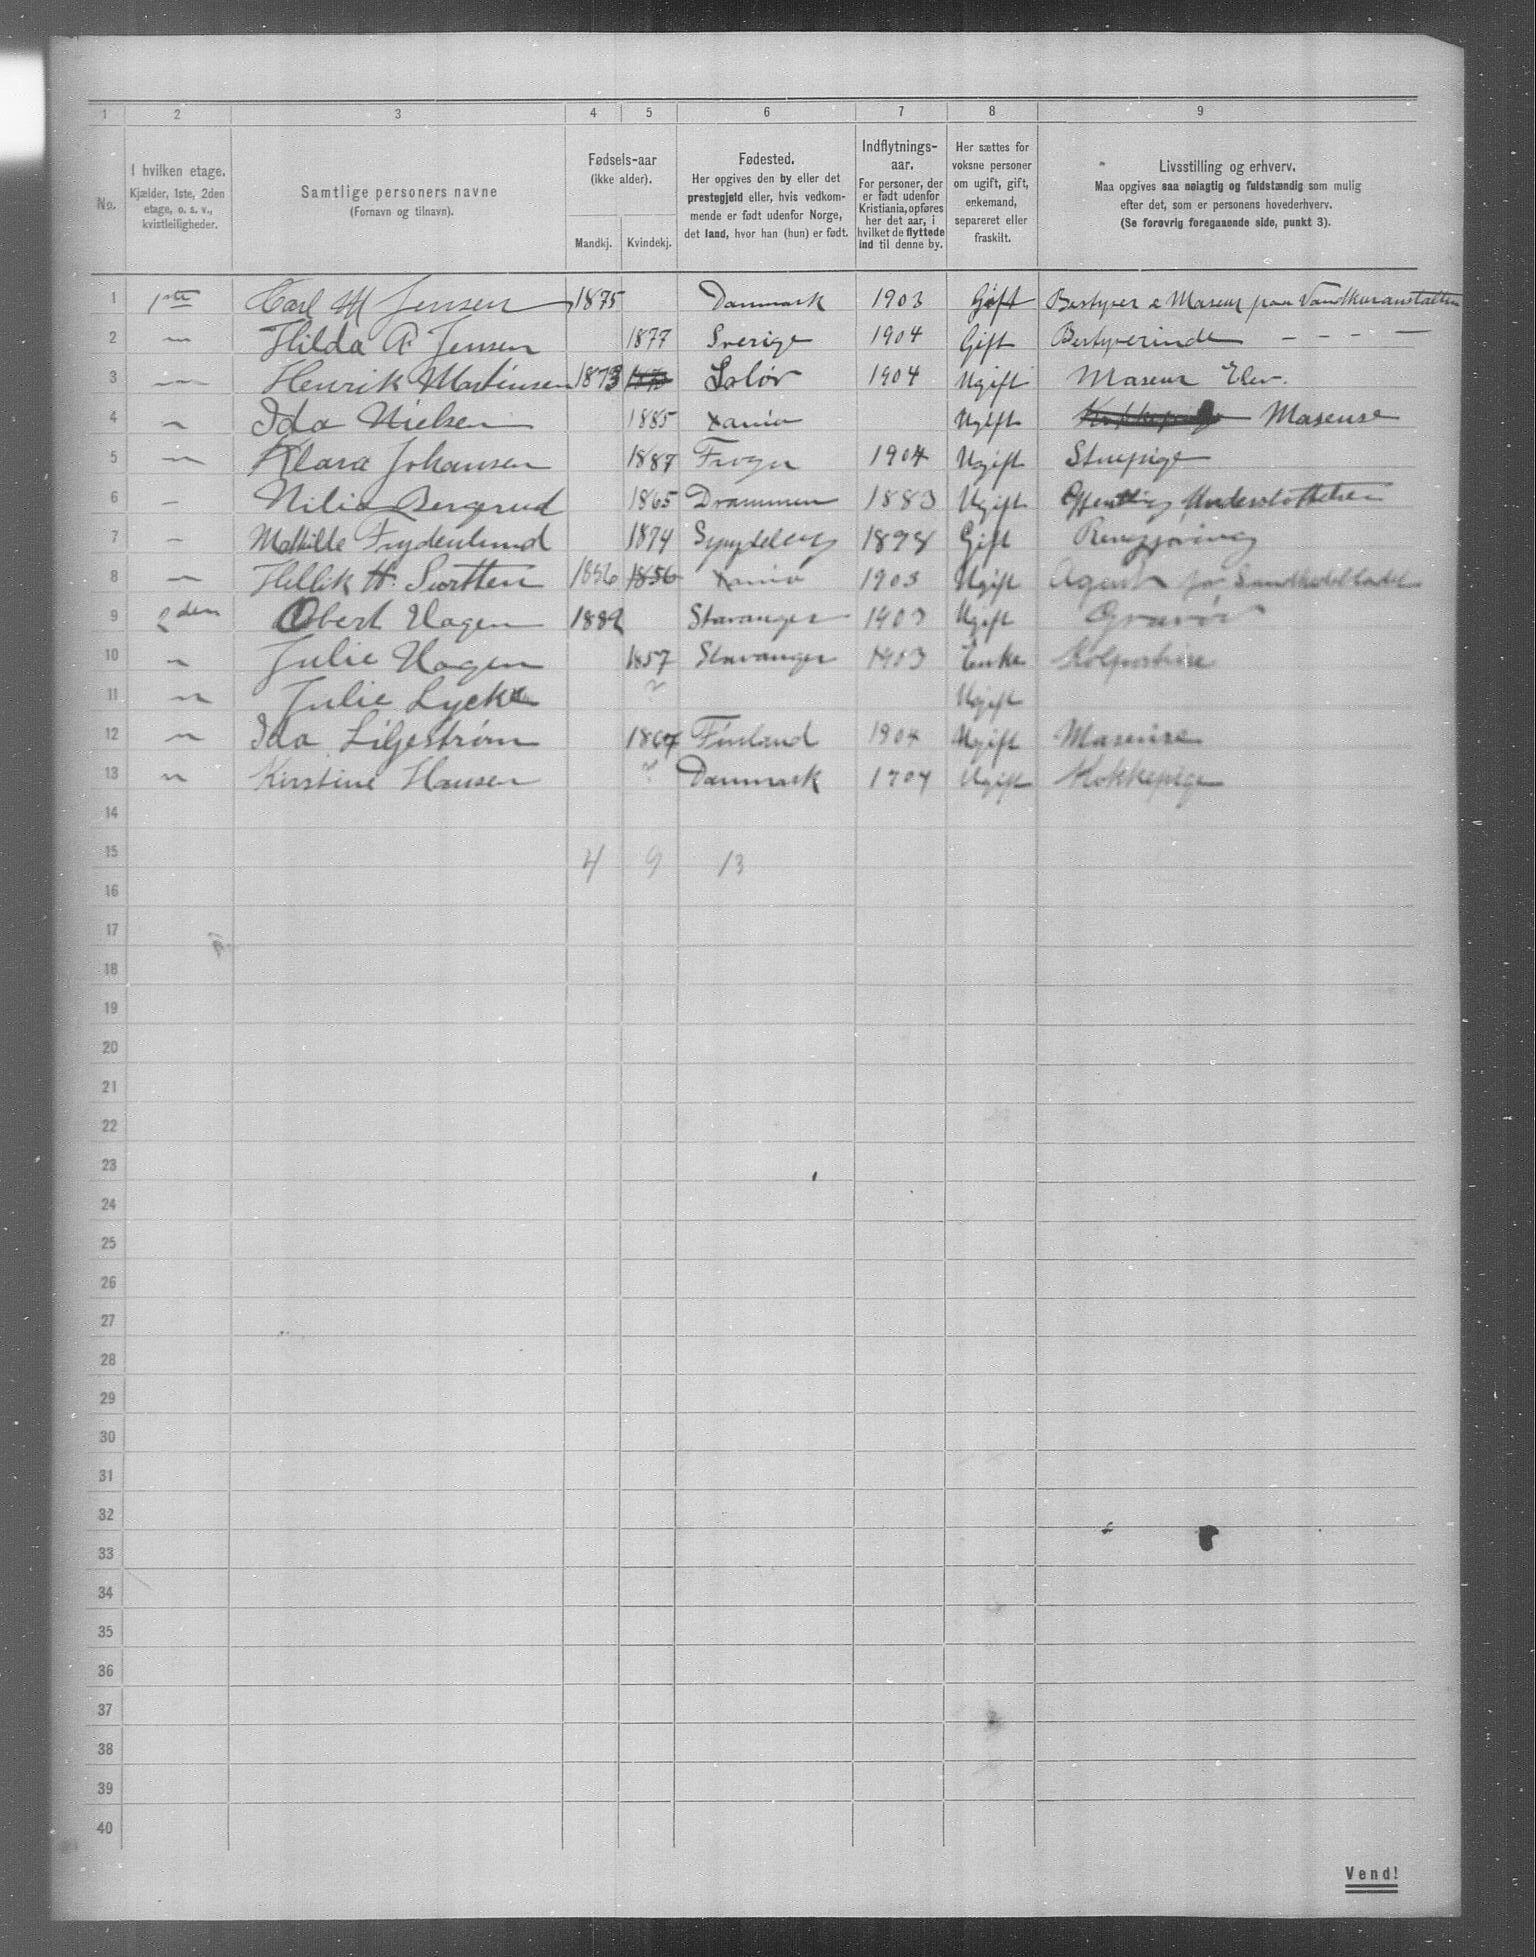 1 2 3 4 5 6 7 8 9
No.
I hvilken etage.
Kjælder, 1ste, 2den
etage, o. s. v.,
kvistleiligheder.
Samtlige personers navne
(Fornavn og tilnavn).
Fødsels-aar
(ikke alder).
Mandkj. Kvindekj.
Fødested.
Her opgives den by eller det
prestegjeld eller, hvis vedkom-
mende er født udenfor Norge,
det land, hvor han (hun) er født.
Indflytnings-
aar.
For personer, der
er født udenfor
Kristiania, opføres
her det aar, i
hvilket de flyttede
ind til denne by.
Her sættes for
voksne personer
om ugift, gift,
enkemand,
separeret eller
fraskilt.
Livsstilling og erhverv.
Maa opgives saa nøiagtig og fuldstændig som mulig
efter det, som er personens hovederhverv.
(Se forøvrig foregaaende side, punkt 3).
1 1ste Carl M Jensen 1875 Danmark 1903 Gift Bestyrer & Maseur paa Vandkuranstalten
2 — Hilda A Jensen 1877 Sverige 1904 Gift Bestyrerinde — — — —
3 — Henrik Martinsen 1873 Solør 1904 Ugift Maseur Elev.
4 — Ida Nielsen 1885 Xania Ugift Maseuse
5 — Klara Johansen 1887 Frogn 1904 Ugift Stuepige
6 — Nilia Bergerud 1865 Drammen 1883 Ugift Offentlig Understøttelse
7 — Mathilde Frydenlund 1874 1898 Gift Rengjøring
8 — Hellik H. 1856 1856 Xania 1903 Ugift Agent for
9 2den Obert Hagen 1882 Stavanger 1903 Ugift Gravør
10 — Julie Hagen 1857 Stavanger 1903 Enke Kolportrise
11 — Julie Lycke ? Ugift
12 — Ida Liljestrøm 1867 Finland 1904 Ugift Maseuse
13 — Kirstine Hansen ? Danmark 1904 Ugift Kokkepige
14
15 4 9 13
16
17
18
19
20
21
22
23
24
25
26
27
28
29
30
31
32
33
34
35
36
37
38
39
40
Vend!